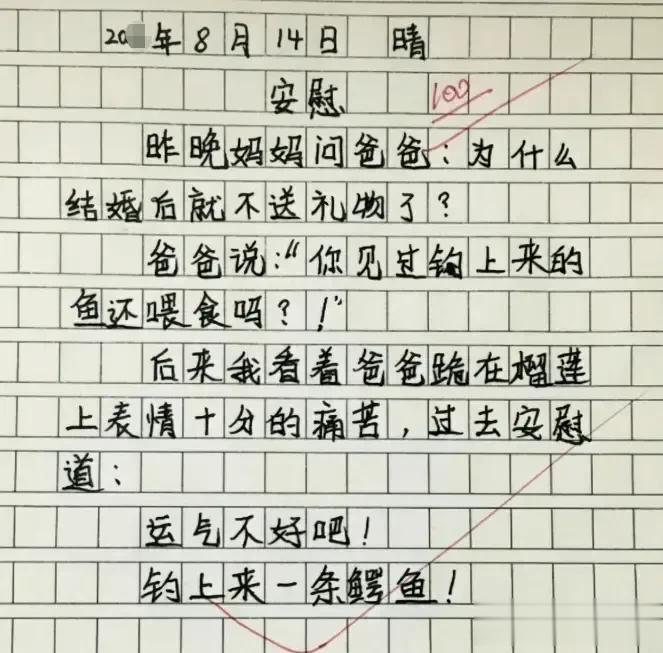 20 年8月14日 晴
安慰
100
昨晚妈妈问爸爸：为什么
结婚后就不送礼物了？
爸爸说：“你见过钩上来的
鱼还喂食吗？！”
后来我看着爸爸跪在榴莲
上表情十分的痛苦，过去安慰
道：
运气不好吧！
钓上来一条鳄鱼！